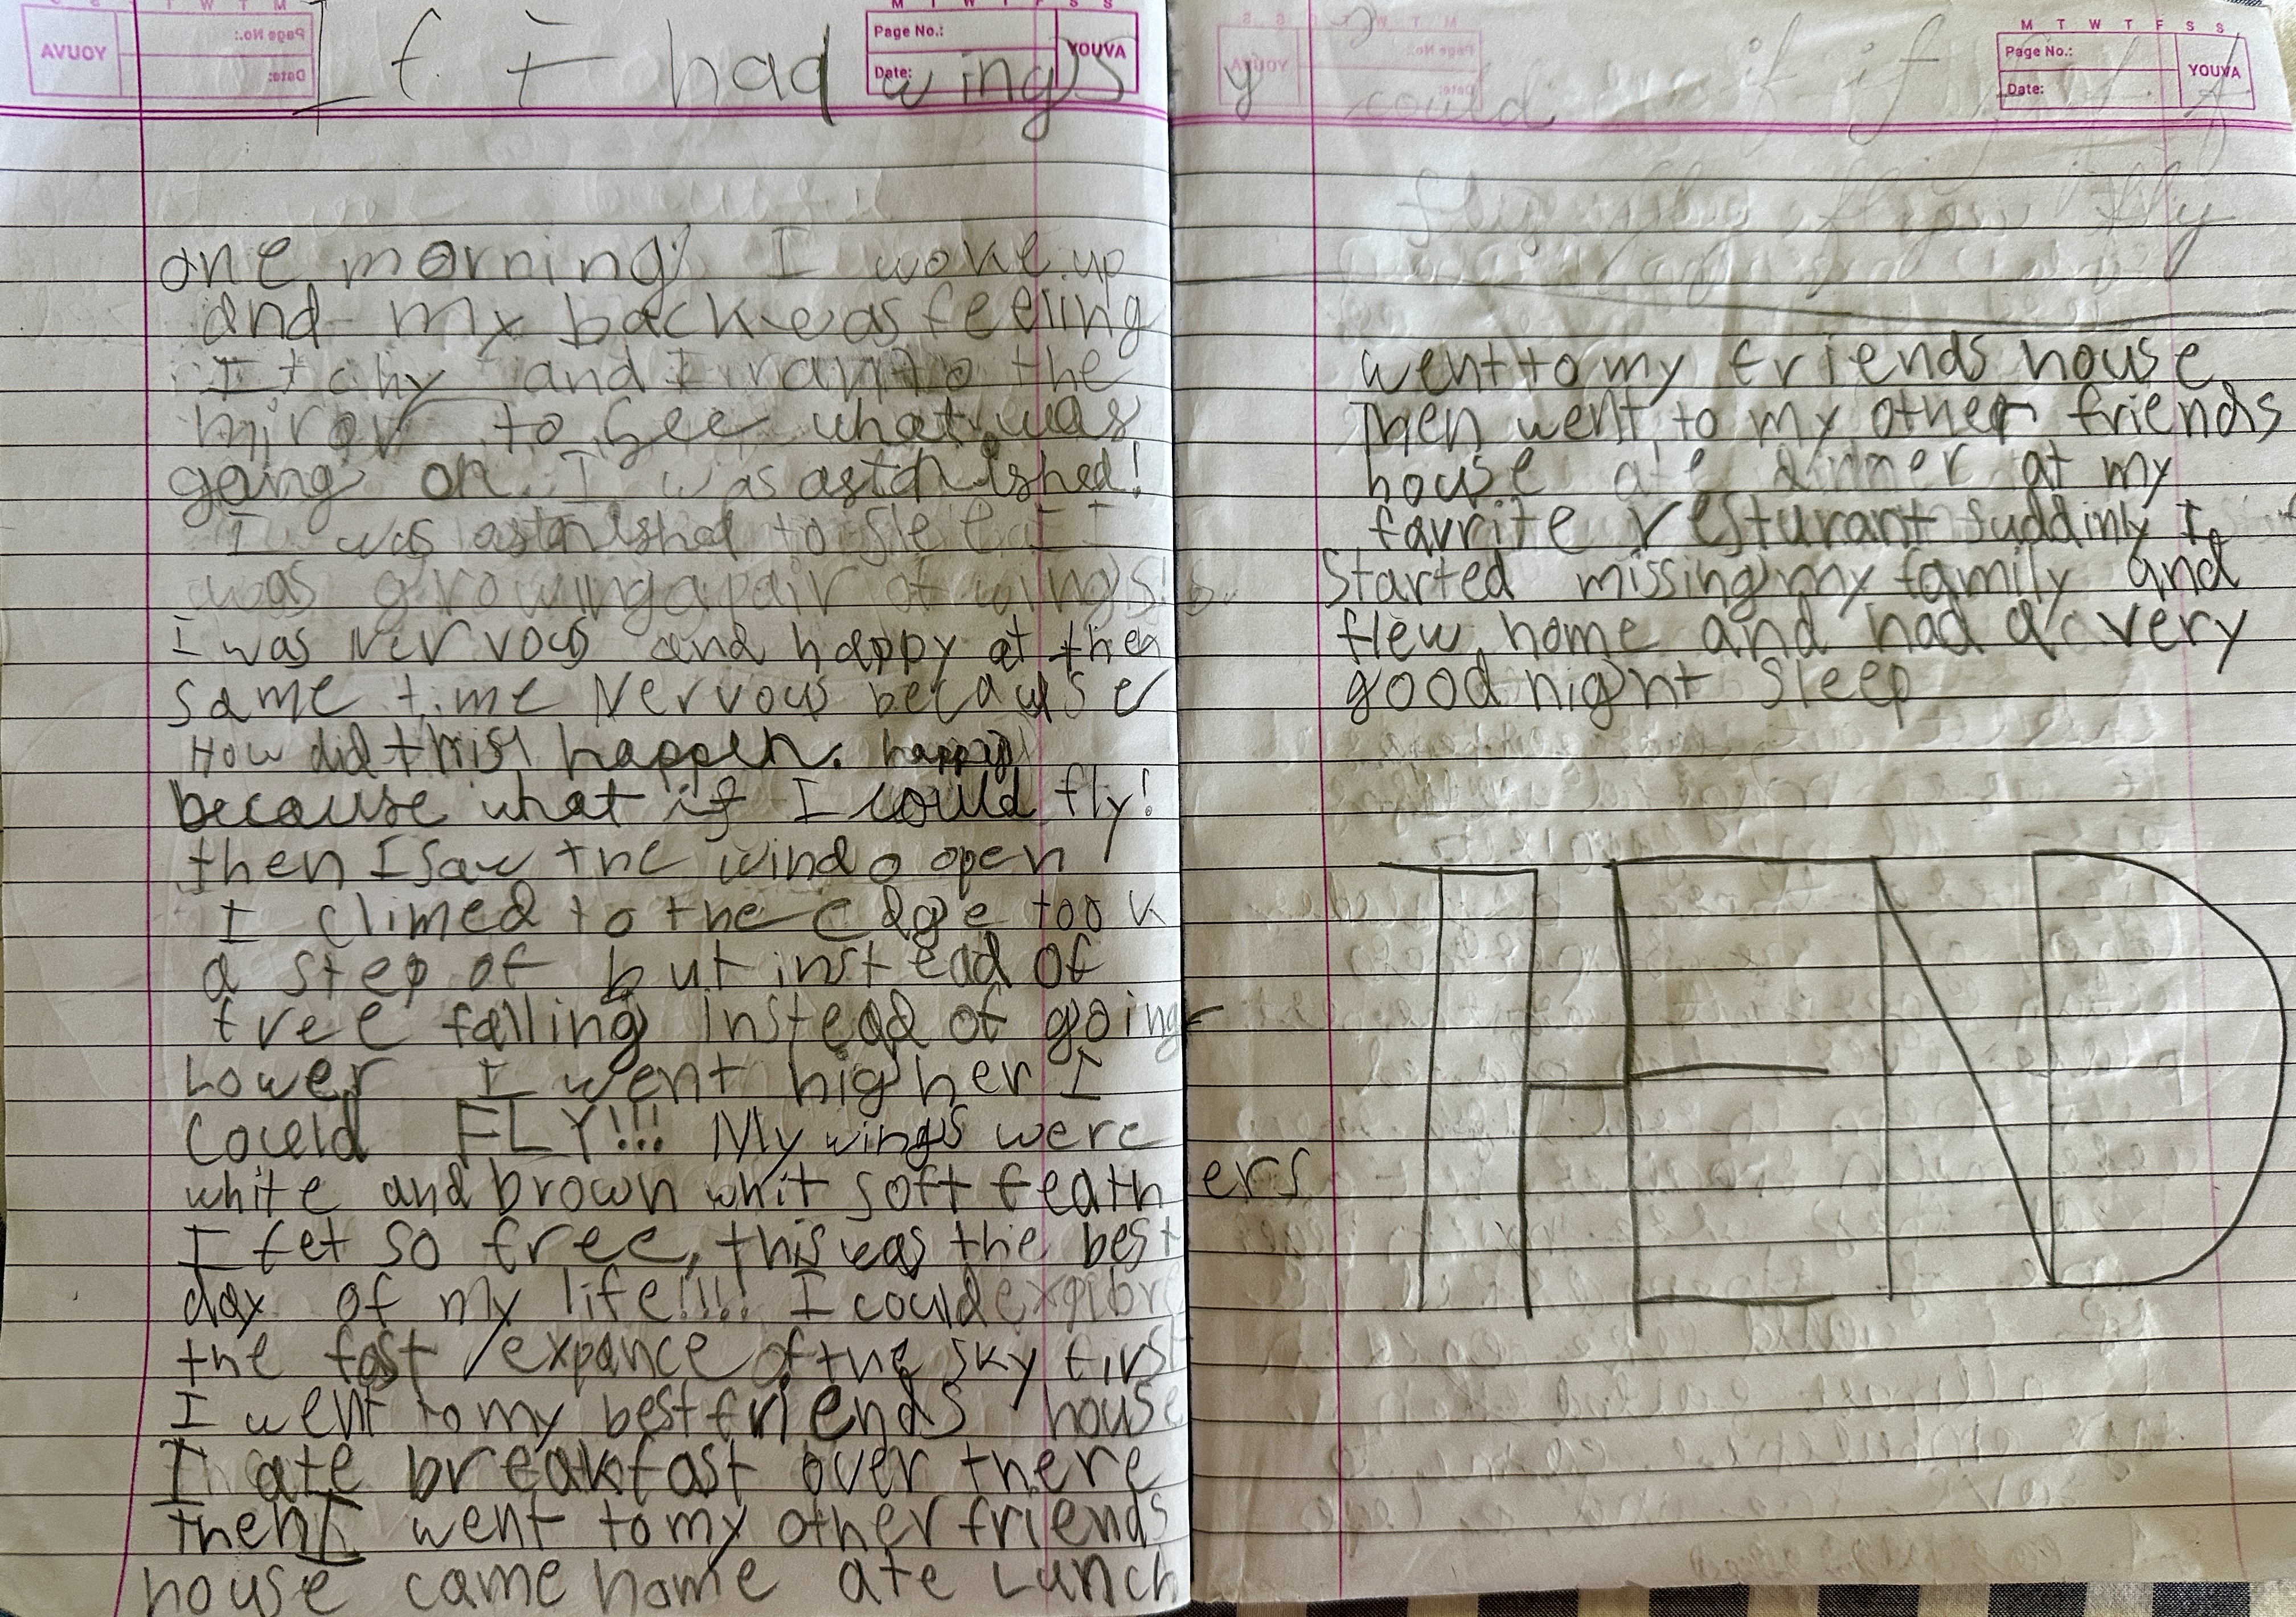 M T W T F S S
Page No.:
Date:
YOUVA
If I had wings
one morning I woke up
and my back was feeling
Itchy and I ran to the
miror to see what was
going on. I was astonished!
I was astonished to see I
was growing a pair of wings!
I was Nervous and happy at the
same time Nervous because
How did this happen. happy
because what if I could fly!
then I saw the windo open
I climed to the edge took
a step of but instead of
free falling instead of going
Lower I went higher I
could FLY!!! My wings were
white and brown whit soft feathers
I fet so free, this was the best
day of my life!!!! I could
the fast expance of the sky first
I went to my best friends house
I ate breakfast over there
then I went to my other friends
house came home ate Lunch
M T W T F S S
Page No.:
Date:
YOUVA
could if if
fly
went to my friends house
Then went to my other friends
house ate dinner at my
favrite resturant suddinly I
started missing my family and
flew home and had a very
good night sleep
THEND